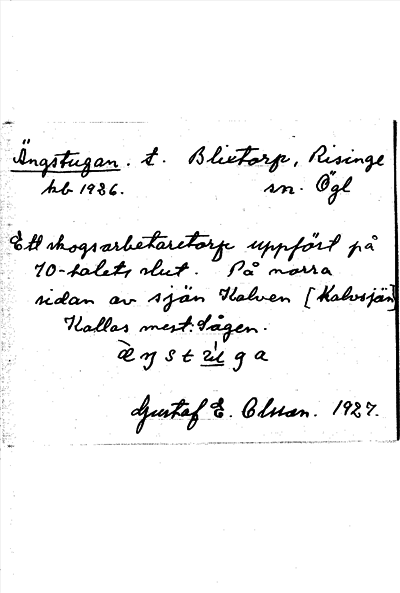 Ängstugan. t. Blixtorp, Risinge
kb 1926. sn. Ögl
Ett skogsarbetaretorp uppfört på
70-talets slut. På norra
sidan av sjön Kalven [Kalvsjön]
Kallas mest: Sågen.
Gustaf E. Olsson. 1927.